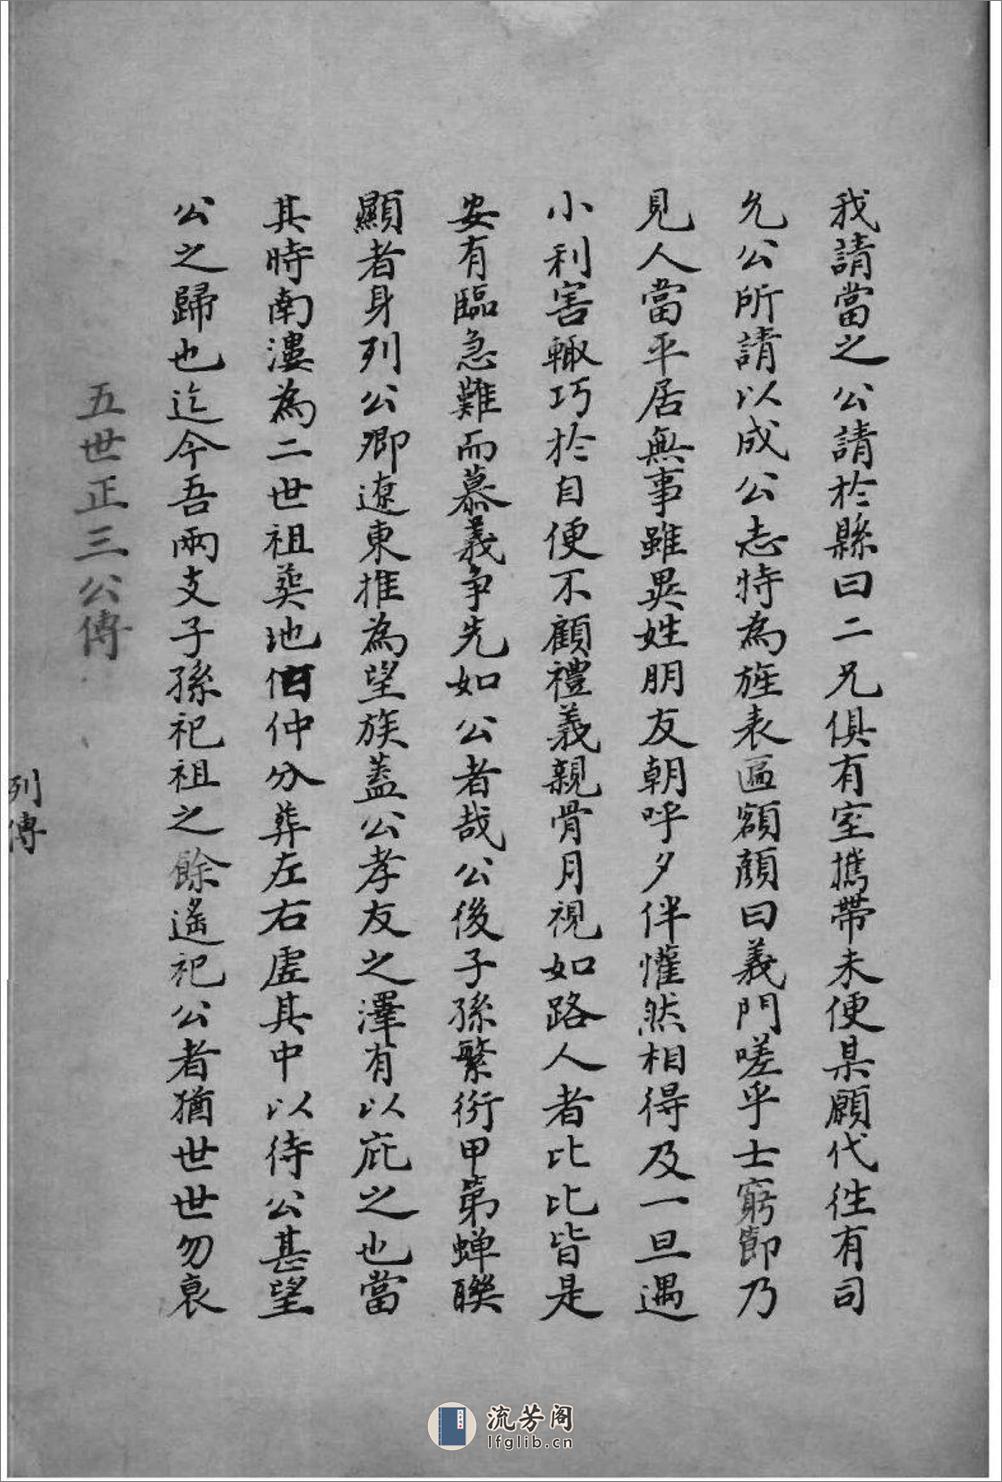 我請當之公請於縣曰二兄俱有室攜帶未便某願代往有司
允公所請以成公志特為旌表匾額顏曰義門嗟乎士窮節乃
見人當平居無事雖異姓朋友朝呼夕伴懽然相得及一旦遇
小利害輙巧於自便不顧禮義親骨月視如路人者比比皆是
安有臨急難而慕義争先如公者哉公後子孫繁衍甲第蟬聯
顯者身列公卿遼東推為望族蓋公孝友之澤有以庇之也當
其時南漊為二世祖葬地伯仲分葬左右虛其中以待公甚望
公之歸也迄今吾兩支子孫祀祖之餘遙祀公者猶世世勿衰
五世正三公傳
列傳
流芳阁
lfglib.cn